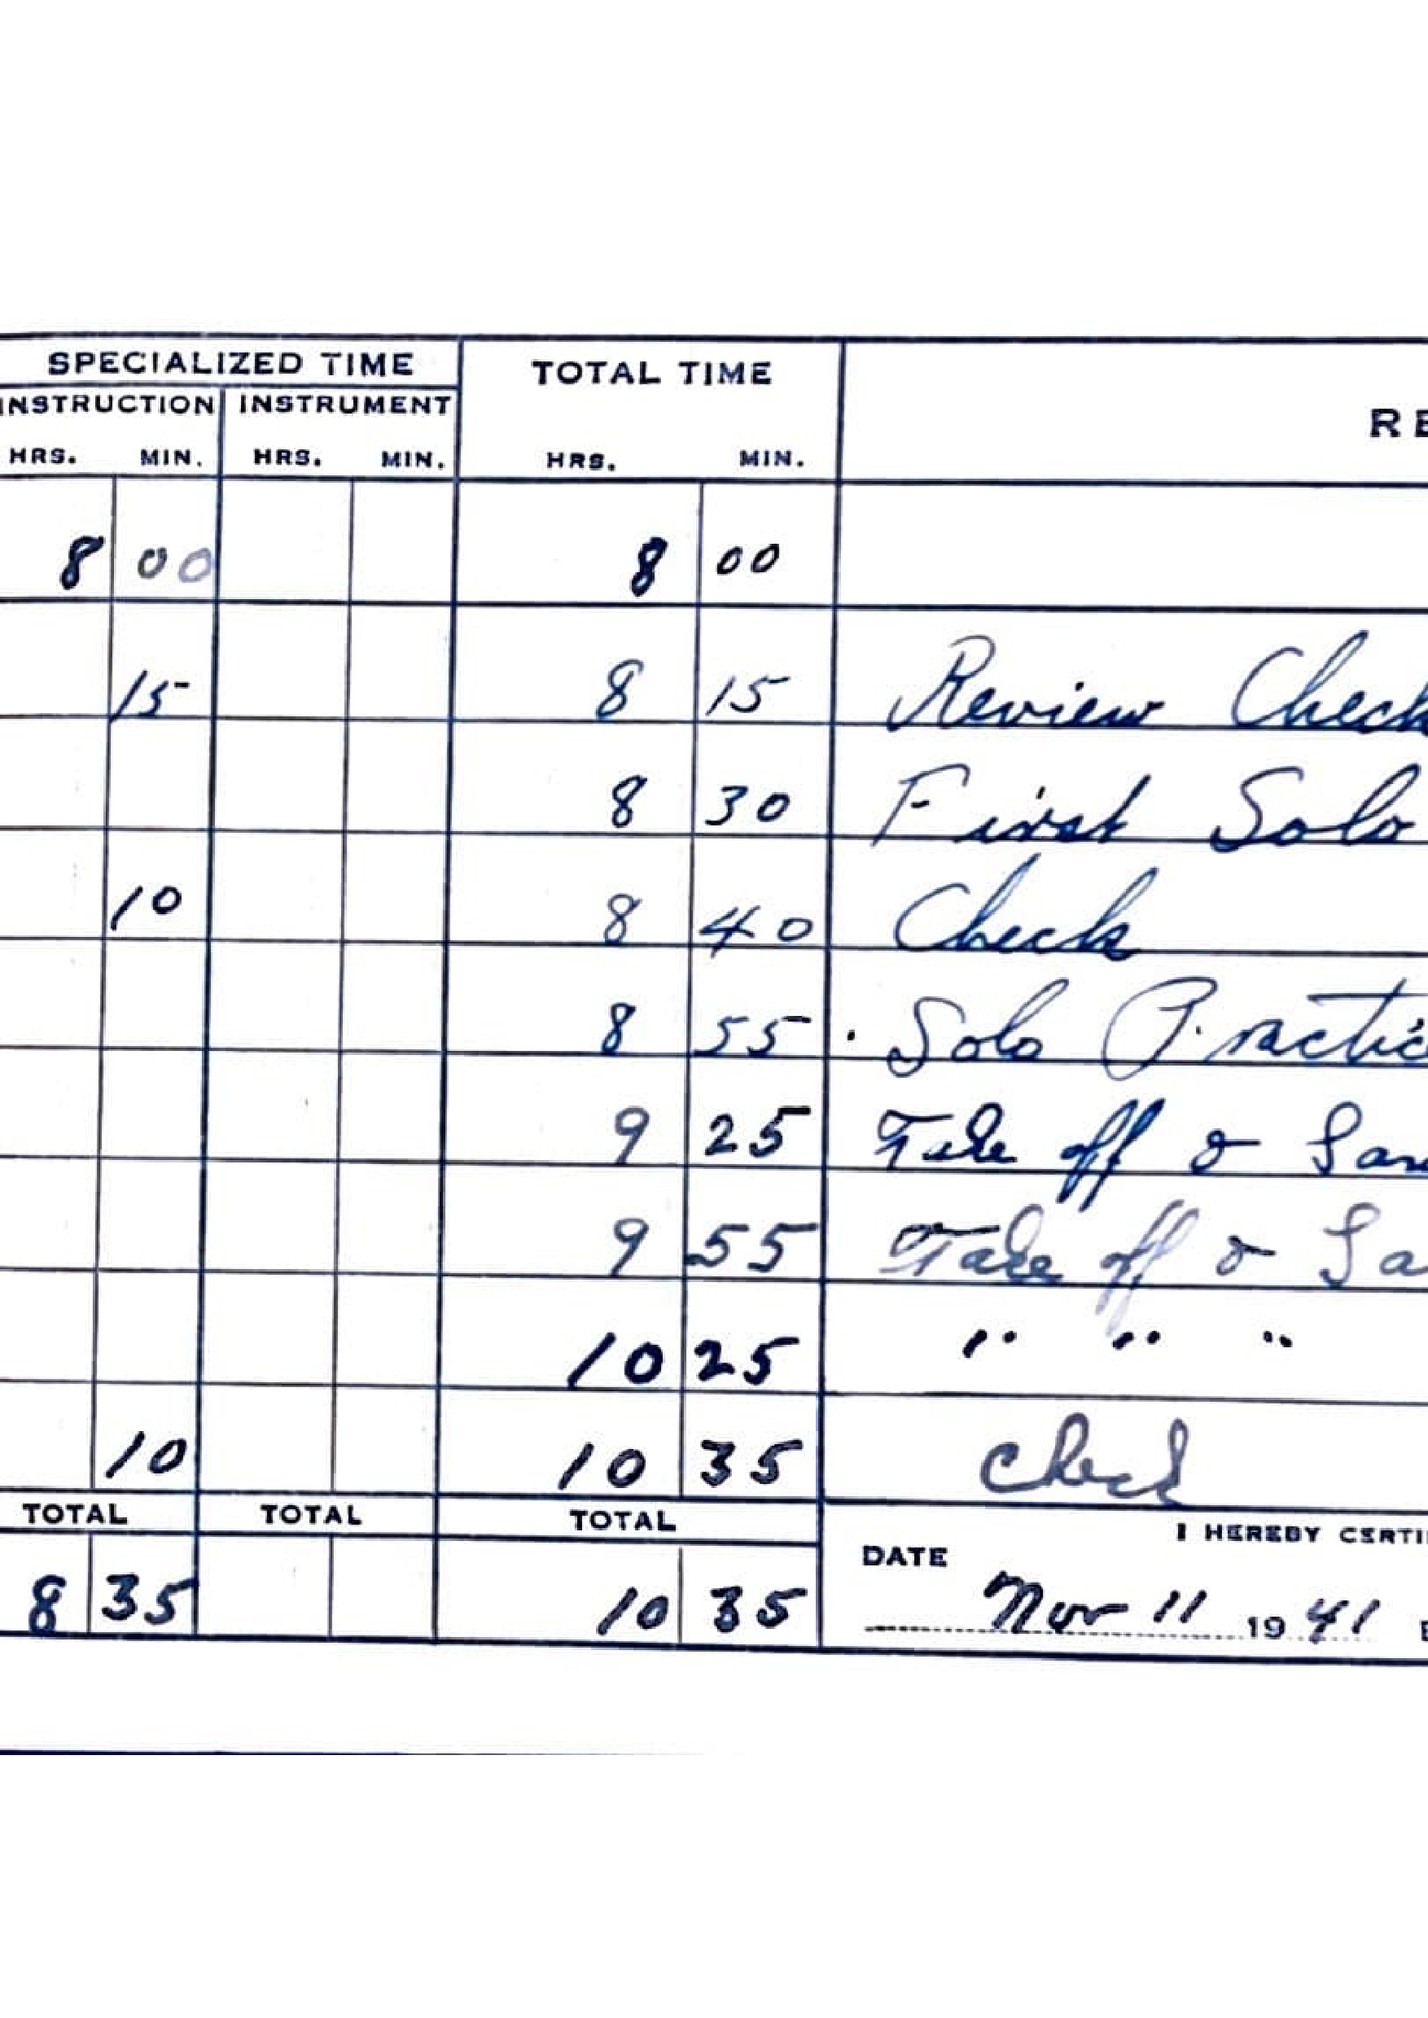 SPECIALIZED TIME TOTAL TIME
INSTRUCTION INSTRUMENT RE
HRS. MIN. HRS. MIN. HRS. MIN.
8 00 8 00
15 8 15 Review Check
8 30 First Solo
10 8 40 Check
8 55 Solo Practic
9 25 Take off & Lan
9 55 Take off & La
10 25 " " "
10 10 35 check
TOTAL TOTAL TOTAL I HEREBY CERTI
8 35 10 35 DATE Nov 11 19 41